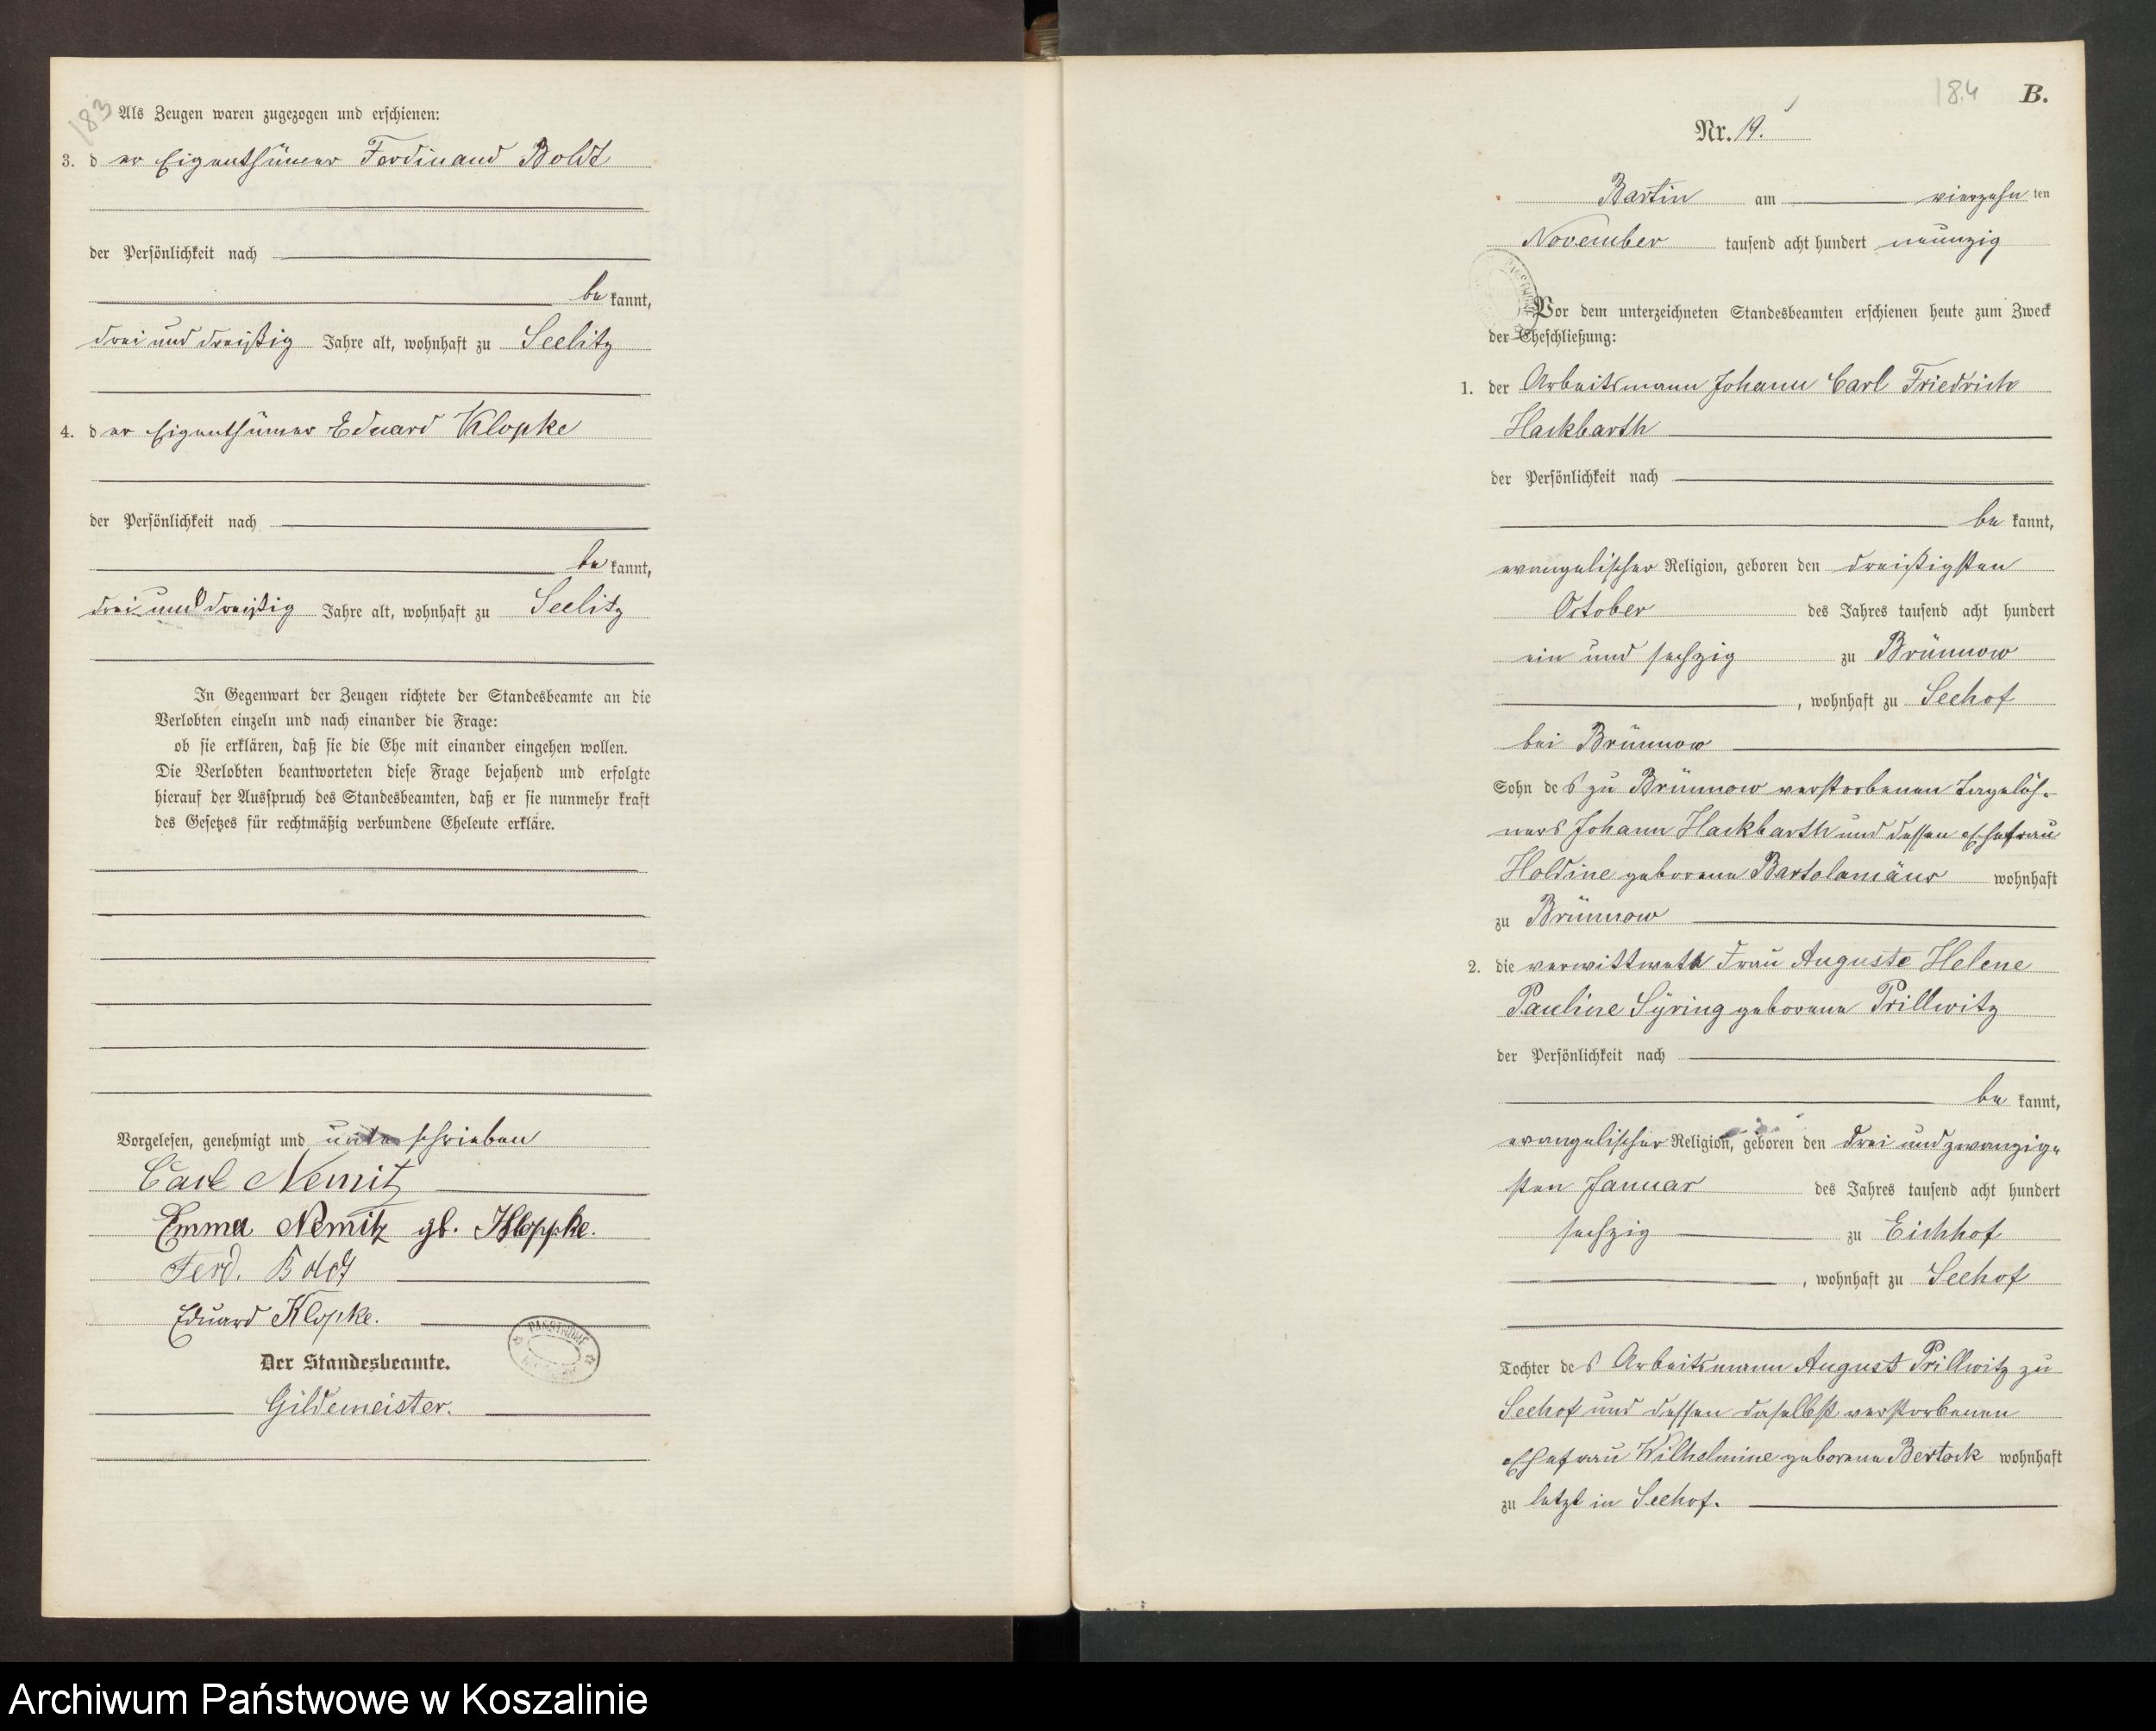 183
Als Zeugen waren zugezogen und erschienen:
3. der Eigenthümer Ferdinand Boldt
der Persönlichkeit nach
bekannt,
drei und dreißig Jahre alt, wohnhaft zu Seelitz
4. der Eigenthümer Eduard Klopke
der Persönlichkeit nach
bekannt,
drei und dreißig Jahre alt, wohnhaft zu Seelitz
In Gegenwart der Zeugen richtete der Standesbeamte an die
Verlobten einzeln und nach einander die Frage:
ob sie erklären, daß sie die Ehe mit einander eingehen wollen.
Die Verlobten beantworteten diese Frage bejahend und erfolgte
hierauf der Ausspruch des Standesbeamten, daß er sie nunmehr kraft
des Gesetzes für rechtmäßig verbundene Eheleute erkläre.
Vorgelesen, genehmigt und unterschrieben
Carl Nemitz
Emma Nemitz gb. Kloppke.
Ferd. Boldt
Eduard Klopke.
Der Standesbeamte.
Gildemeister.
184 B.
Nr. 19.
Bartin am vierzehnten
November tausend acht hundert neunzig
Vor dem unterzeichneten Standesbeamten erschienen heute zum Zweck
der Eheschließung:
1. der Arbeitsmann Johann Carl Friedrich
Hackbarth
der Persönlichkeit nach
bekannt,
evangelischer Religion, geboren den dreißigsten
October des Jahres tausend acht hundert
ein und sechzig zu Brünnow
, wohnhaft zu Seehof
bei Brünnow
Sohn des zu Brünnow verstorbenen Tagelöh-
ners Johann Hackbarth und dessen Ehefrau
Holdine geborene Bartolamäus wohnhaft
zu Brünnow
2. die verwittwete Frau Auguste Helene
Pauline Syring geborene Prillwitz
der Persönlichkeit nach
bekannt,
evangelischer Religion, geboren den drei und zwanzig-
sten Januar des Jahres tausend acht hundert
sechzig zu Eichhof
, wohnhaft zu Seehof
Tochter des Arbeitsmann August Prillwitz zu
Seehof und dessen daselbst verstorbenen
Ehefrau Wilhelmine geborene Bertock wohnhaft
zu letzt in Seehof.
Archiwum Państwowe w Koszalinie